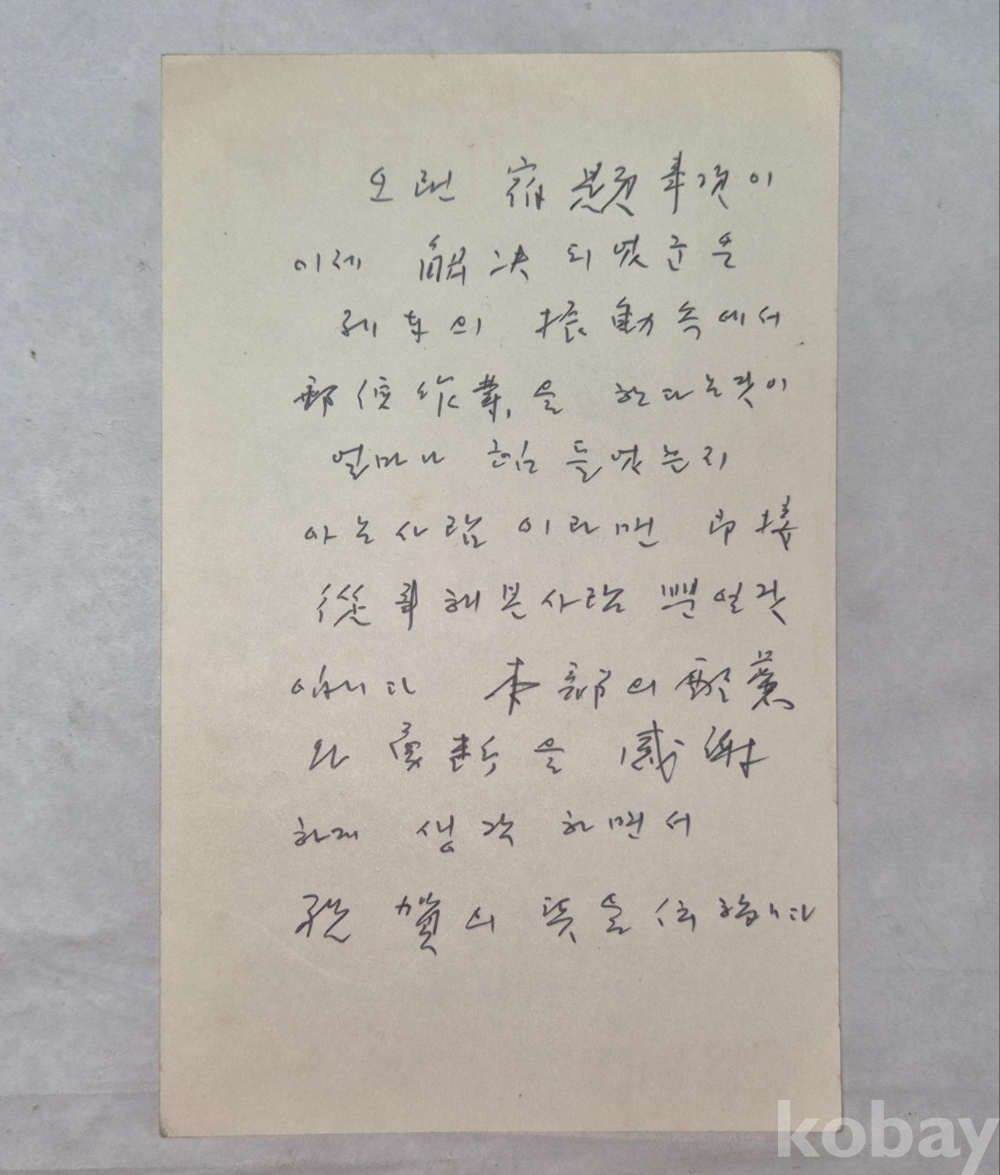 오랜 宿題事項이
이제 解決되엿군요
레차의 振動속에서
郵便作業,을 한다는것이
얼마나 힘 들엇는지
아는사람 이라면 即接
從事해본사람 뿐일것
입니다 本部의
와 勇斷을 感謝
하게 생각 하면서
祝賀의 뜻을 伝합니다
kobay